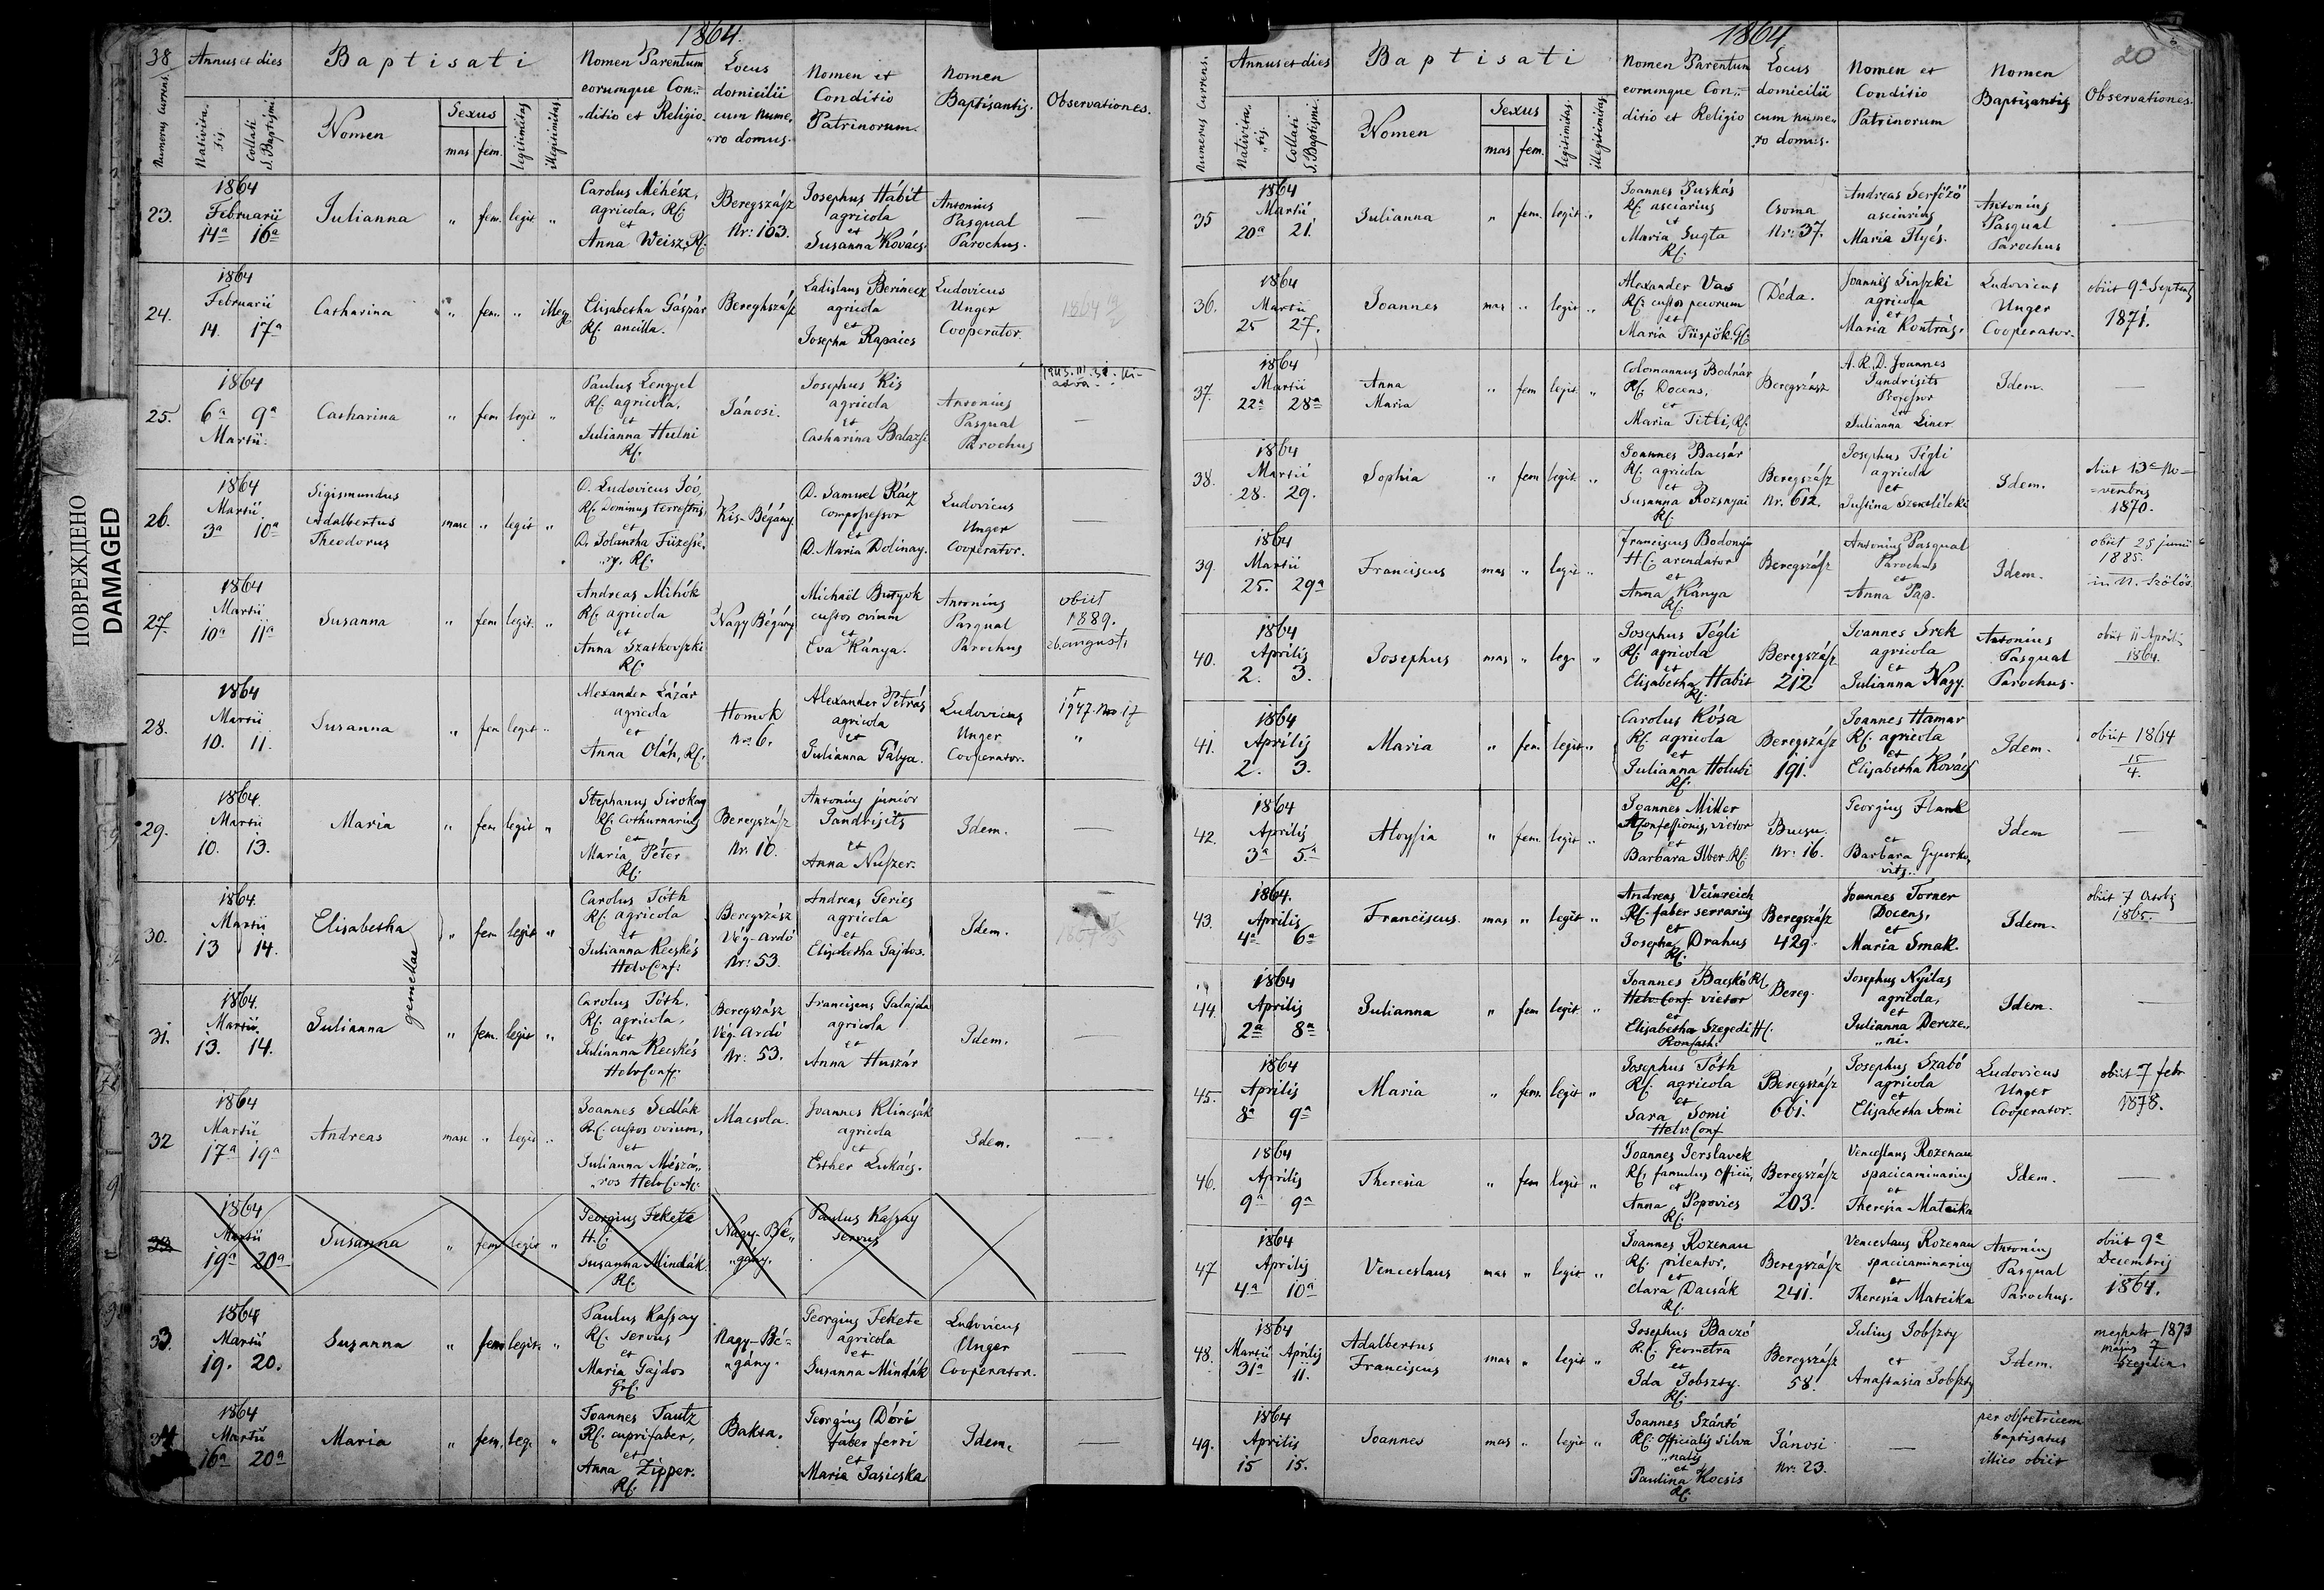 ПОВРЕЖДЕНО
DAMAGED
1864.
38
Annus et dies
Baptisati
Nomen Parentum
eorumque Con-
ditio et Religio.
Locus
domicilii
cum nume,
ro domus.
Nomen et
Conditio
Patrinorum.
Nomen
Baptisantis.
Observationes.
Numerus Currens.
Nativita,
tis.
Collati
S. Baptismi
Nomen
Sexus
mas
fem.
legitimitas
illegitimitas
23.
1864
Februarii
14a 16a
Julianna
" fem. legit "
Carolus Méhész,
agricola, Rf:
et
Anna Weisz, Rf.
Beregszász
Nr: 103.
Josephus Hábit
agricola
et
Susanna Kovács.
Antonius
Pasqual
Parochus.
—
24.
1864
Februarii
14. 17a
Catharina
" fem. " illeg.
Elisabetha Gáspár
Rf. ancilla.
Bereghszász
Ladislaus Berinecz
agricola
et
Josepha Rapaics
Ludovicus
Unger
Cooperator.
1864
25.
1864
6a 9a
Martii.
Catharina
" fem legit "
Paulus Lengyel
Rf. agricola,
et
Julianna Hutni
Rf.
Jánosi.
Josephus Kis
agricola
et
Catharina Balazsi
Antonius
Pasqual
Parochus
—
26.
1864
Martii
3a 10a
Sigismundus
Adalbertus
Theodorus
masc " legit "
D. Ludovicus Joó,
Rf. Dominus terrestris,
et
D. Jolantha Füzessé,
ry, Rf.
Kis-Bégány
D. Samuel Rácz
Compossessor
et
D. Maria Dolinay.
Ludovicus
Unger
Cooperator.
—
27.
1864
Martii
10a 11a
Susanna
" fem legit. "
Andreas Mihók
Rf. agricola
et
Anna Szatkovszki
Rf.
Nagy Bégány
Michaël Butyok
custos ovium
et
Eva Kánya.
Antonius
Pasqual
Parochus
obiit
1889.
26. augusti,
28.
1864
Martii
10. 11.
Susanna
" fem legit "
Alexander Lázár
agricola
et
Anna Oláh, Rf.
Homok
Nr: 6.
Alexander Petrás
agricola
et
Julianna Gálya.
Ludovicus
Unger
Cooperator.
1947. 17
"
29.
1864.
Martii
10. 13.
Maria
" fem legit "
Stephanus Sirokay
Rf. Cothurnarius
et
Maria Péter
Rf.
Beregszász
Nr: 10.
Antonius junior
Jandrisits
et
Anna Nuszer.
Idem.
—
30.
1864.
Martii
13 14.
Elisabetha
gemellae
" fem legit "
Carolus Tóth
Rf. agricola
et
Julianna Kecskés
Helv Conf:
Beregszász
Vég-Ardó
Nr: 53.
Andreas Gerics
agricola
et
Elisabetha Gajdos.
Idem.
31.
1864.
Martii
13. 14.
Julianna
" fem. legit "
Carolus Tóth,
Rf. agricola,
et
Julianna Kecskés
Helv Conf:
Beregszász
Vég-Ardó
Nr: 53.
Franciscus Galajda
agricola
et
Anna Huszár
Idem.
—
32
1864
Martii
17a 19a
Andreas
masc " legit "
Joannes Sedlák
Rf. custos ovium,
et
Julianna Mészá,,
,,ros Helv Conf:
Macsola.
Joannes Klincsák
agricola
et
Esther Lukács.
Idem.
—
33
1864
Martii
19a 20a
Susanna
" fem legit "
Georgius Fekete
H. C.
Susanna Mindák
Rf.
Nagy-Bé,,
,,gány.
Paulus Kassay
servus
33.
1864
Martii
19. 20.
Susanna
" fem legit. "
Paulus Kassay
Rf. servus
et
Maria Gajdos
Grf.
Nagy-Bé-
,,gány.
Georgius Fekete
agricola
et
Susanna Mindák
Ludovicus
Unger
Cooperator.
—
34
1864
Martii
16a 20a
Maria
" fem. leg. "
Joannes Tautz
Rf. cuprifaber,
et
Anna Zipper.
Rf.
Baksa.
Georgius Dóri
faber ferri
et
Maria Jasicska
Idem.
—
1864
20
Numerus Currens.
Annus et dies
Baptisati
Nomen Parentum
eorumque Con,,
ditio et Religio
Locus
domicilii
cum nume,,
ro domus.
Nomen et
Conditio
Patrinorum
Nomen
Baptisantis
Observationes.
Nativita,
tis.
Collati
S. Baptismi.
Nomen
Sexus
mas
fem.
legitimitas.
illegitimitas
35
1864
Martii
20a 21.
Julianna
" fem legit. "
Joannes Puskás
Rf. asciarius
et
Maria Sugta
Rf.
Csoma
Nr: 37.
Andreas Serfőző
asciarius
Maria Ilyés.
Antonius
Pasqual
Parochus
—
36.
1864
Martii
25 27.
Joannes
mas " legit "
Alexander Vas
Rf. custos pecorum
et
Maria Püspök. Gf.
Déda.
Joannis Sinszki
agricola
et
Maria Kontrás.
Ludovicus
Unger
Cooperator.
obiit 9a Septemb
1871.
37.
1864
Martii
22a 28a
Anna
Maria
" fem legit. "
Colomannus Bodnár
Rf. Docens,
et
Maria Titli, Rf.
Beregszász
A. R. D. Joannes
Jandrisits
Professor
et
Julianna Liner
Idem.
—
38.
1864
Martii
28. 29.
Sophia
" fem legit. "
Joannes Bacsár
Rf. agricola
et
Susanna Rozsnyai
Rf.
Beregszász
Nr. 612.
Josephus Tégli
agricola
et
Justina Szentléleki
Idem.
obiit 13a No=
=vembris
1870.
39.
1864
Martii
25. 29a
Franciscus
mas " legit "
Franciscus Bodonyi
H. C. arendator
et
Anna Kánya
Rf.
Beregszász
Antonius Pasqual
Parochus
et
Anna Pap.
Idem.
obiit 25 junii
1885.
in N. Szőlős.
40.
1864
Aprilis
2. 3.
Josephus
mas " leg. "
Josephus Tégli
Rf. agricola
et
Elisabetha Habit
Rf.
Beregszász
212.
Joannes Srek
agricola
et
Julianna Nagy.
Antonius
Pasqual
Parochus.
obiit 11 Aprilis
1864.
41.
1864
Aprilis
2. 3.
Maria
" fem. legit "
Carolus Rósa
Rf. agricola
et
Julianna Holubi
Rf.
Beregszász
191.
Joannes Hamar
Rf. agricola
et
Elisabetha Kovács
Idem.
obiit 1864
15
4.
42.
1864
Aprilis
3a 5a
Aloysia
" fem. legit "
Joannes Miller
victor
et
Barbara Ilber Rf.
Bucsu.
Nr: 16.
Georgius Flank
et
Barbara Gyurko,
vits.
Idem
—
43.
1864.
Aprilis
4a 6a
Franciscus.
mas " legit "
Andreas Veinreich
Rf. faber serrarius
et
Josepha Drahus
Rf.
Beregszász
429.
Joannes Torner
Docens,
et
Maria Smak.
Idem.
obiit 7 Octobr
1865.
44.
1864
Aprilis
2a 8a
Julianna
" fem legit "
Joannes Bacskó Rf.
Helv. Conf. victor
et
Elisabetha Szegedi H.
Rom Cath:
Bereg.
Josephus Nyilas
agricola,
et
Julianna Dercze,,
,,ni.
Idem.
—
45.
1864
Aprilis
8a 9a
Maria
" fem. legit "
Josephus Tóth
Rf. agricola
et
Sara Somi
Helv: Conf
Beregszász
661.
Josephus Szabó
agricola
et
Elisabetha Somi
Ludovicus
Unger
Cooperator.
obiit 7 febr
1878.
46.
1864
Aprilis
9a 9a
Theresia
" fem legit "
Joannes Jerslavek
Rf. famulus officii,
et
Anna Popovics
Rf.
Beregszász
203.
Venceslaus Rozenau
spacicaminarius
et
Theresia Matcika
Idem.
—
47
1864
Aprilis
4a 10a
Venceslaus
mas " legit "
Joannes Rozenau
Rf. pileator,
et
Clara Dacsák
Rf.
Beregszász
241.
Venceslaus Rozenau
spacicaminarius
et
Theresia Matcika
Antonius
Pasqual
Parochus.
obiit 9a
Decembris
1864.
48.
1864
Martii Aprilis
31a 11.
Adalbertus
Franciscus
mas " legit "
Josephus Baczó
R. C. Geometra
et
Ida Jobszty.
Rf.
Beregszász
58.
Julius Jobszty
et
Anastasia Jobszty
Idem.
meghalt 1873
május 7
Szegedin.
49.
1864
Aprilis
15 15.
Joannes
mas " legit "
Joannes Szántó
Rf. Officialis Silva
,,nalis
et
Paulina Kocsis
Rf.
Jánosi
Nr: 23.
—
per obstetricem
baptisatus
illico obiit